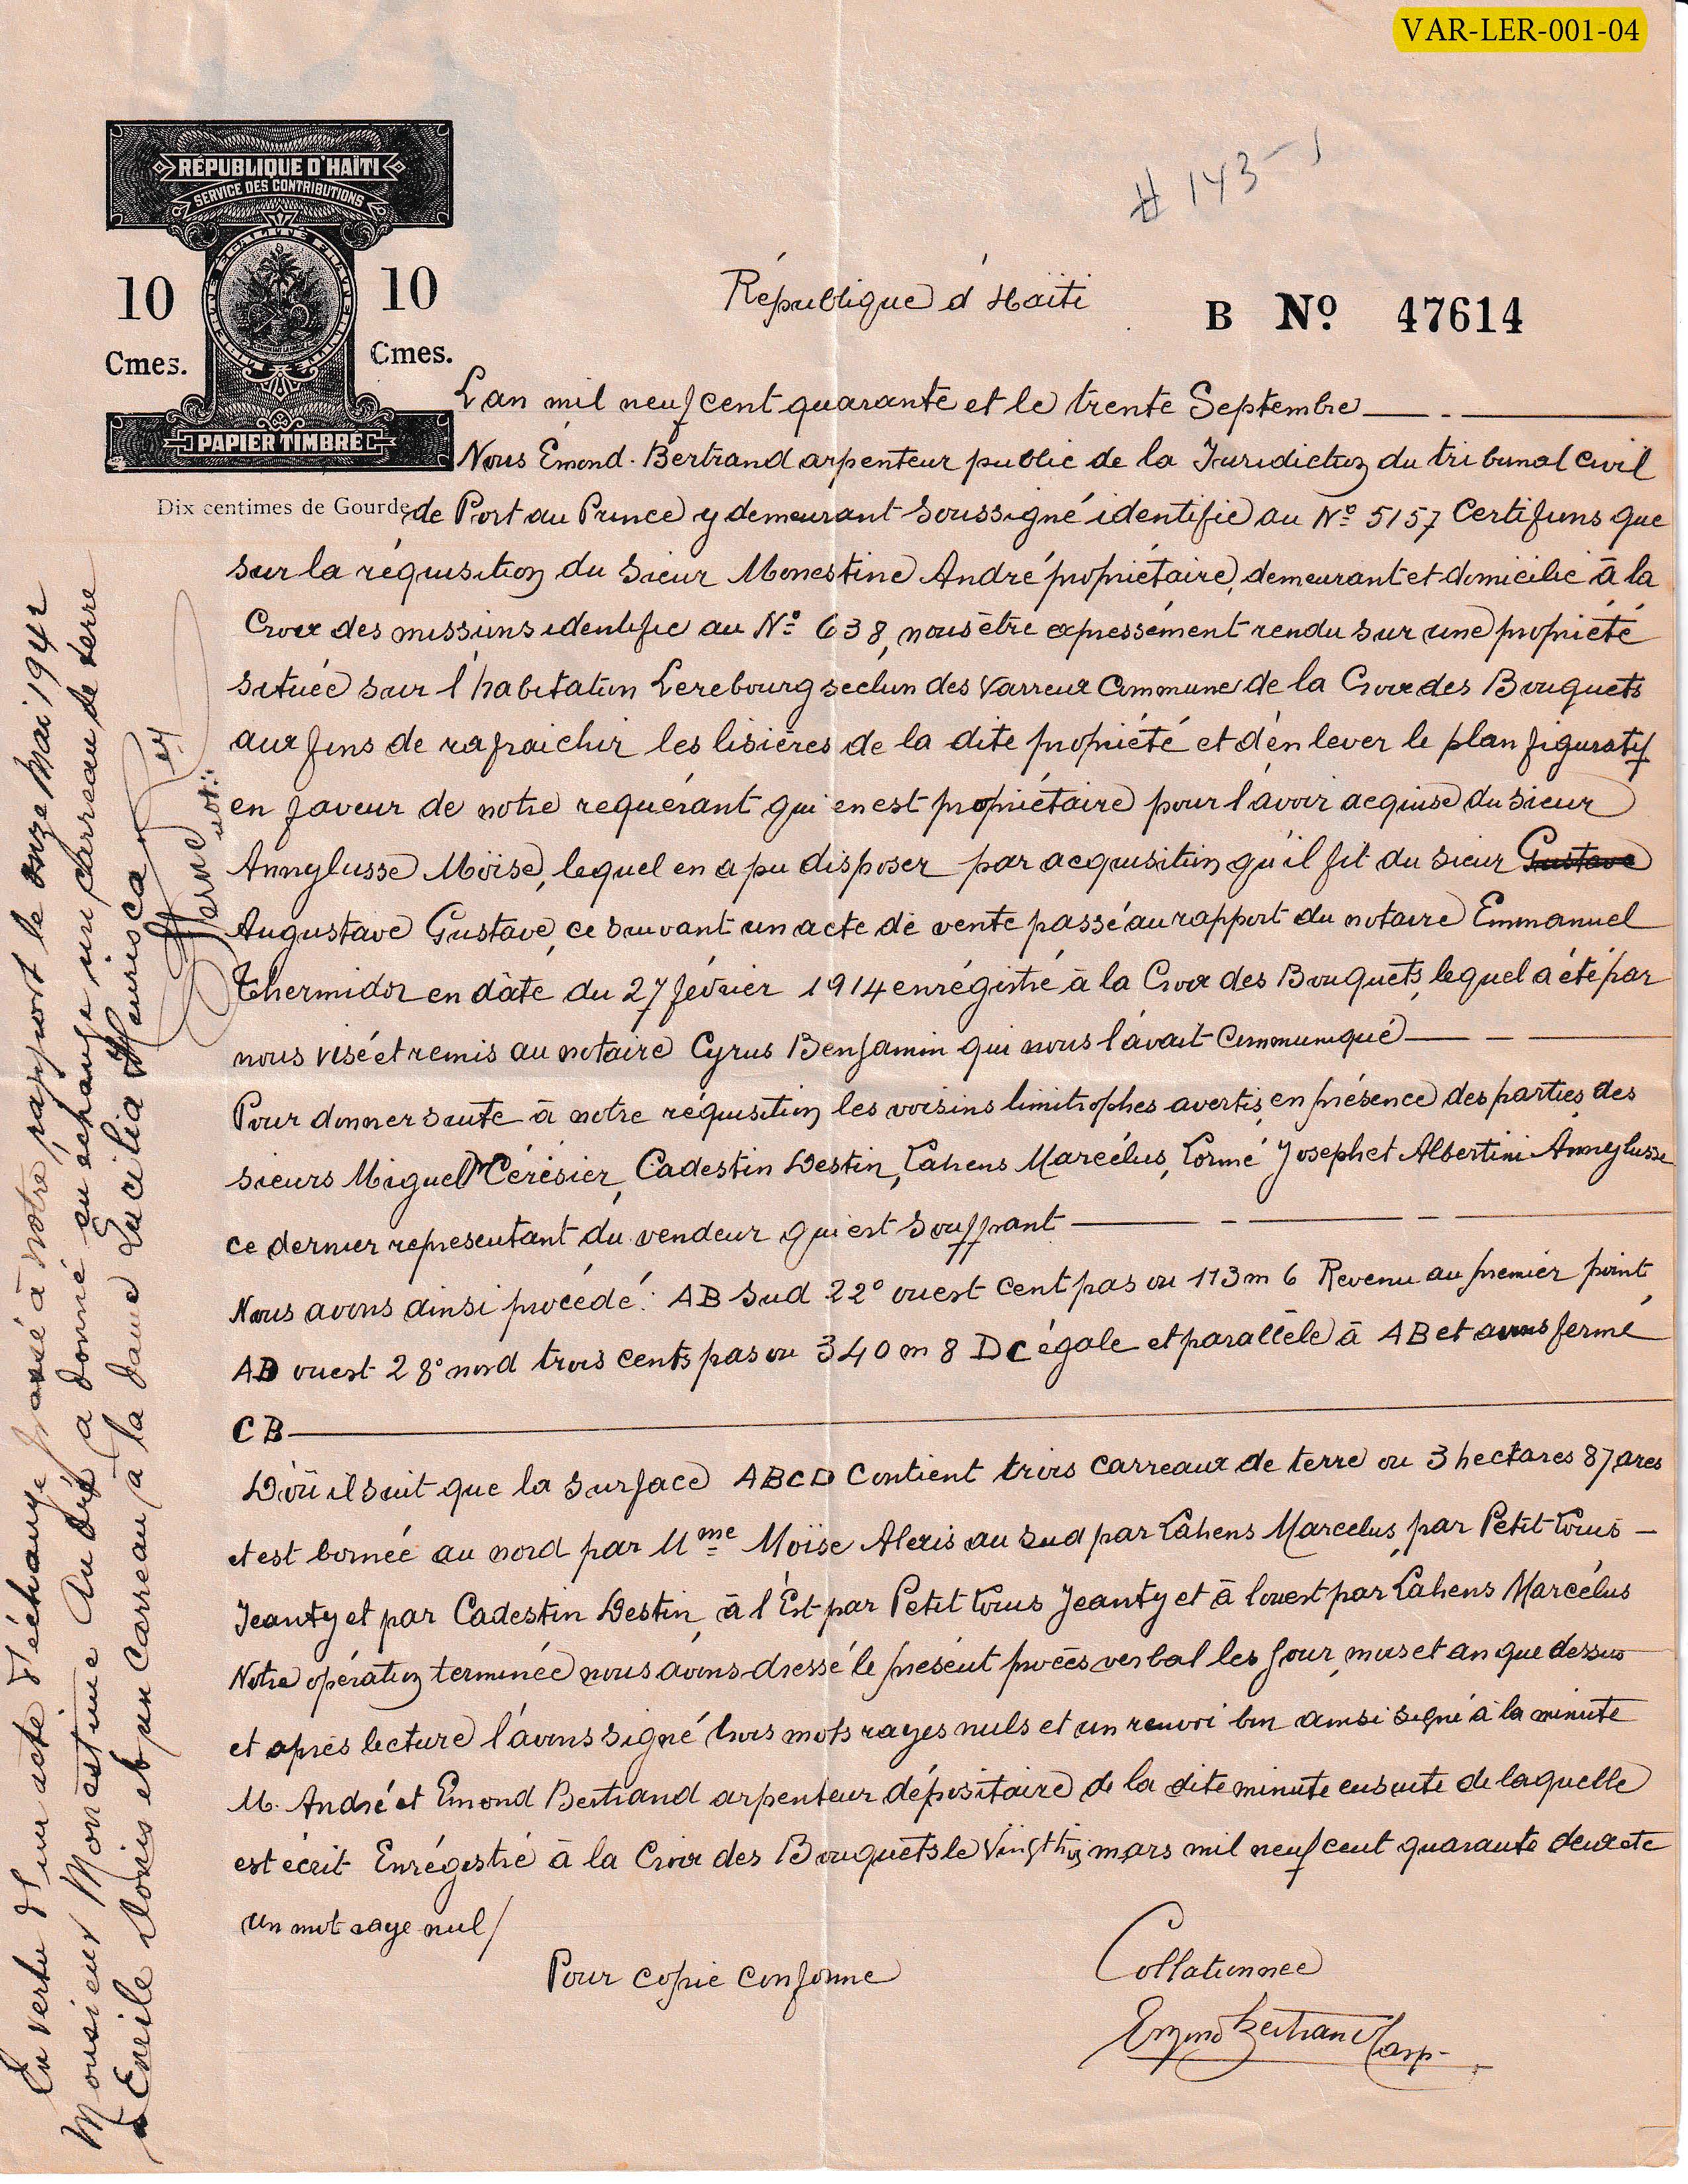 VAR-LER-001-04
# 143-1
RÉPUBLIQUE D'HAÏTI
SERVICE DES CONTRIBUTIONS
10 10
Cmes. Cmes.
PAPIER TIMBRÉ
Dix centimes de Gourde
République d'Haïti
B No 47614
L'an mil neuf cent quarante et le trente Septembre
Nous Émond Bertrand arpenteur public de la Juridiction du tribunal civil
de Port au Prince y demeurant soussigné identifié au No 5157 Certifions que
sur la réquisition du Sieur Monestine André propriétaire, demeurant et domicilié à la
Croix des missions identifié au No 638, nous être expressément rendu sur une propriété
située sur l'habitation Lerebourg section des Varreux Commune de la Croix des Bouquets
aux fins de rafraichir les lisières de la dite propriété et d'en lever le plan figuratif
en faveur de notre requérant qui en est propriétaire pour l'avoir acquise du sieur
Annylusse Moïse, lequel en a pu disposer par acquisition qu'il fit du sieur Gustave
Augustave Gustave, ce suivant un acte de vente passé au rapport du notaire Emmanuel
Thermidor en date du 27 février 1914 enrégistré à la Croix des Bouquets, lequel a été par
nous visé et remis au notaire Cyrus Benjamin qui nous l'avait communiqué
Pour donner suite à notre réquisition les voisins limitrophes avertis, en présence des parties, des
sieurs Miguel Cérésier, Cadestin Destin, Lahens Marcélus, Lormé Joseph et Albertini Annylusse
ce dernier représentant du vendeur qui est souffrant
Nous avons ainsi procédé: AB Sud 22° ouest cent pas ou 113 m 6 Revenu au premier point
AD ouest 28° nord trois cents pas ou 340 m 8 DC égale et parallèle à AB et avons fermé
CB
D'où il suit que la surface ABCD Contient trois carreaux de terre ou 3 hectares 87 ares
et est bornée au nord par Mme Moïse Alexis au sud par Lahens Marcelus, par Petit Louis
Jeanty et par Cadestin Destin, à l'Est par Petit Louis Jeanty et à l'ouest par Lahens Marcélus
Notre opération terminée nous avons dressé le présent procès verbal les jour, mois et an que dessus
et après lecture l'avons signé trois mots rayés nuls et un renvoi bon ainsi signé à la minute
M. André et Émond Bertrand arpenteur dépositaire de la dite minute ensuite de laquelle
est écrit Enrégistré à la Croix des Bouquets le Vingt trois mars mil neuf cent quarante deux etc
un mot rayé nul/
Pour copie conforme
Collationnée
Emond Bertrand arp-
En vertu d'un acte d'échange passé à notre rapport le onze Mai 1942
Monsieur Monestine André a donné en échange un carreau de terre
à Encile Louis et un carreau à la dame Lucilia Heurisca
not: